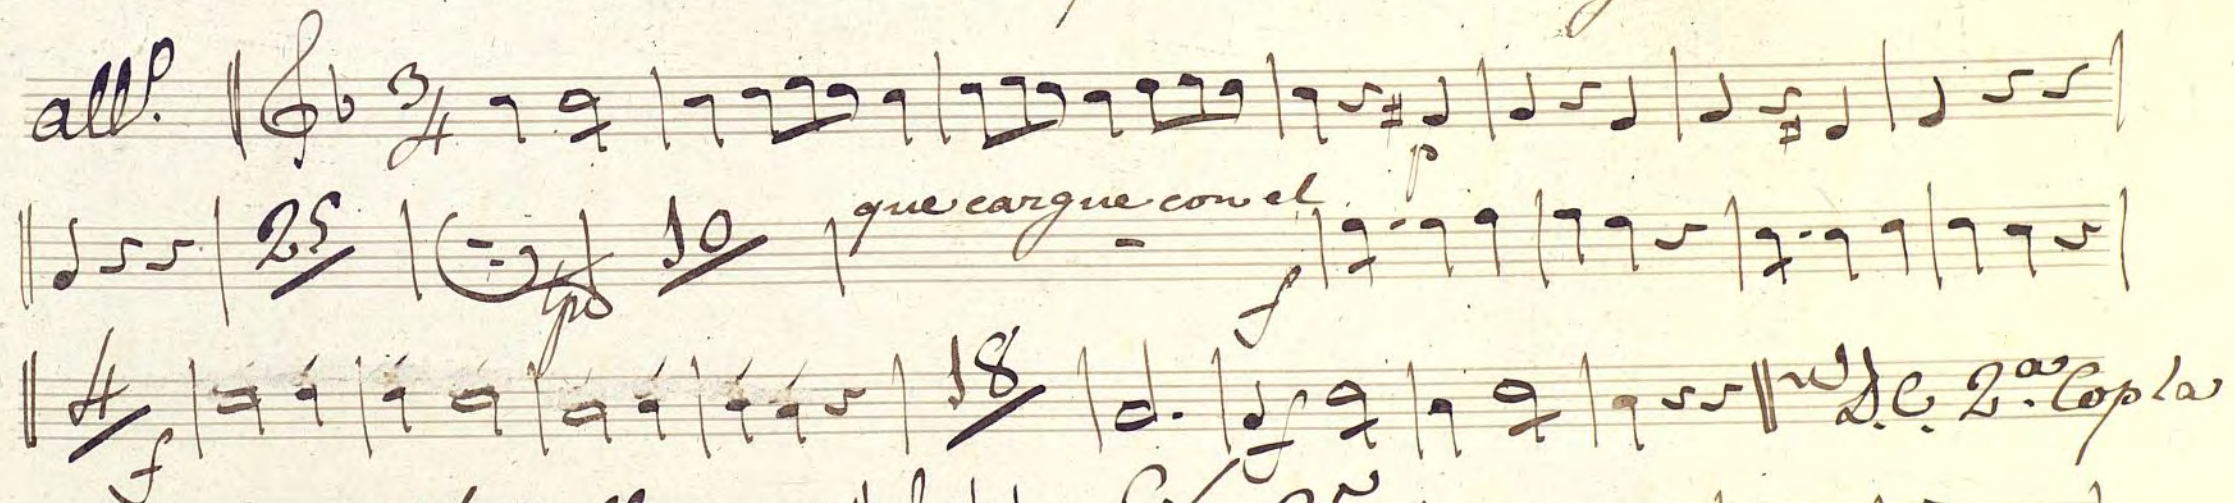 all.º 3/4 p
25 tpo 10 que cargue con el f
4 f 18 f D.C. 2.ª Copla